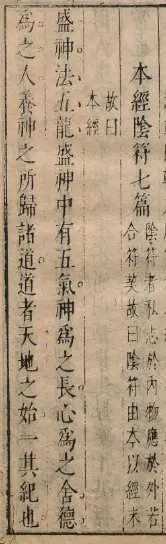 本經陰符七篇
陰符者私志於內物應於外若
合符契故曰陰符由本以經末
故曰
本經
盛神法五龍盛神中有五氣神爲之長心爲之舍德
爲之人養神之所歸諸道道者天地之始一其紀也